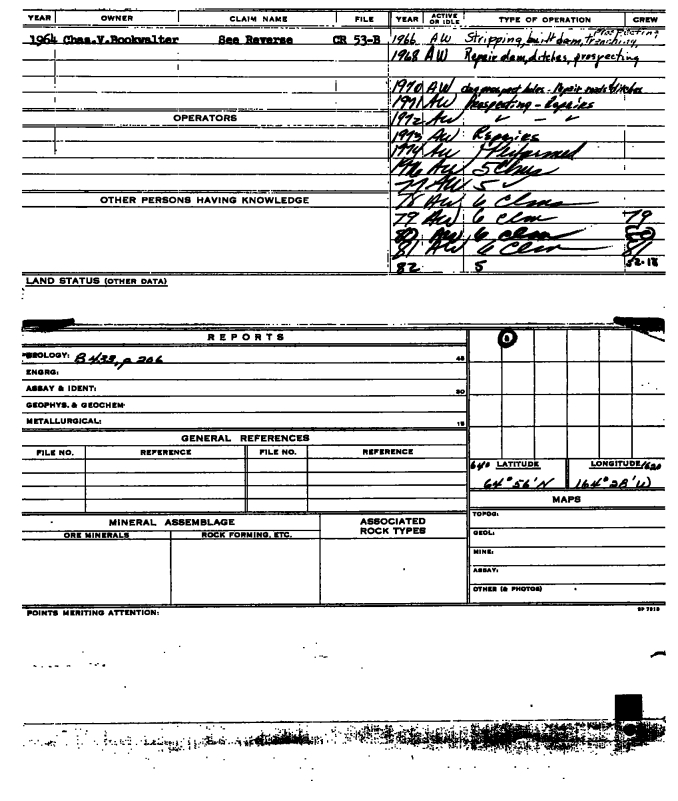 YEAR OWNER CLAIM NAME FILE YEAR ACTIVE OR IDLE TYPE OF OPERATION CREW
1964 Chas.V.Bookwalter See Reverse CR 53-B 1966 AW Stripping, built dam, Trenching, Prospecting
1968 AW Repair dam, ditches, prospecting
1970 AW holes - Repair roads & ditches
1971 AW Prospecting - Repairs
OPERATORS 1972 AW " - "
1973 AW Repairs
1974 AW Performed
1976 AW 5 Clms
77 AW 5 ✓
OTHER PERSONS HAVING KNOWLEDGE 78 AW 6 Clms
79 AW 6 clm 79
80 AW 6 clm 80
81 AW 6 Clm 81
82 5 52-18
LAND STATUS (OTHER DATA)
REPORTS
GEOLOGY: B 433, p 206 45
ENGRG:
ASSAY & IDENT: 30
GEOPHYS. & GEOCHEM.
METALLURGICAL: 15
GENERAL REFERENCES
FILE NO. REFERENCE FILE NO. REFERENCE
640 LATITUDE LONGITUDE/620
64° 56' N 164° 28' W
MAPS
MINERAL ASSEMBLAGE ASSOCIATED ROCK TYPES
ORE MINERALS ROCK FORMING, ETC.
TOPOG:
GEOL:
MINE:
ASSAY:
OTHER (& PHOTOS)
POINTS MERITING ATTENTION: SP 7818